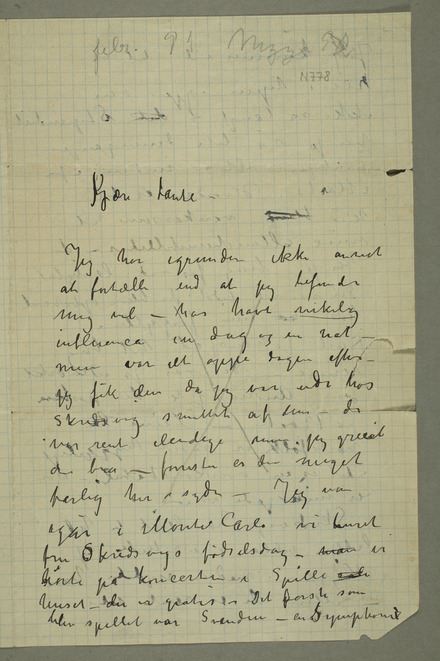 febr. 93 Nizza
N778
Kjære tante
Jeg har igrunden ikke andet
at fortælle end at jeg befinder
mig vel – har havt virkelig
influenca en dag og en nat –
men var alt oppe dagen efter –
jeg fik den da jeg var ude hos
Skredsvig smittet af dem de
var rent elendige men jeg greied
det bra – forresten er den meget
farlig her i syden – Jeg var
igår i Monte Carlo vi
fra Skredsvigs fødselsdag – vi
hørte på koncerten i Spille
huset – der er gratis – Det første som
blev spillet var Svendsen – en Symphoni